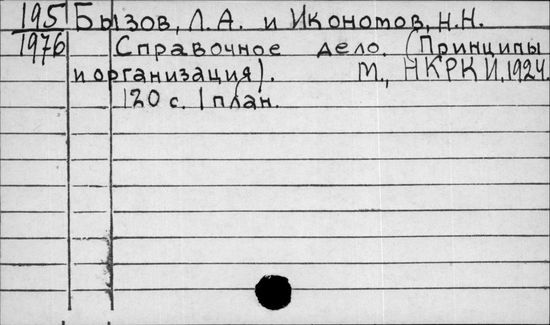 195 Бызов, Л.А. и Икономов, Н.Н.
1976 Справочное дело. (Принципы
и организация). М., НКРКИ, 1924.
120 с. 1 план.